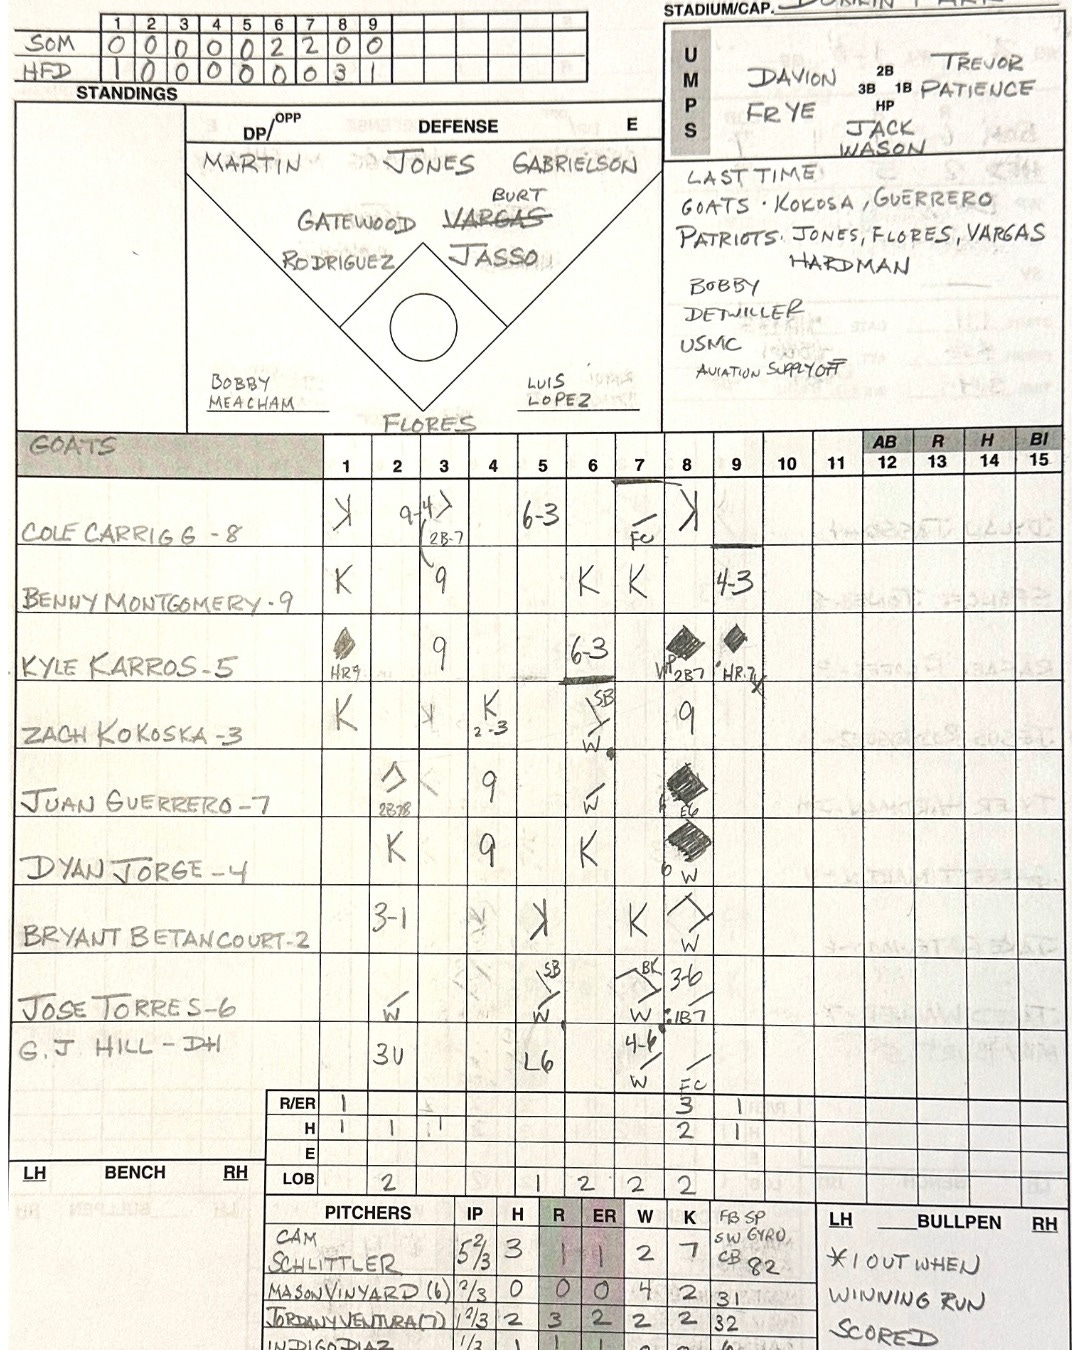 STADIUM/CAP.
1 2 3 4 5 6 7 8 9
SOM 0 0 0 0 0 2 2 0 0
HFD 1 0 0 0 0 0 0 3 1
STANDINGS
DP/OPP DEFENSE E
MARTIN JONES GABRIELSON
BURT
GATEWOOD VARGAS
RODRIGUEZ JASSO
BOBBY
MEACHAM
LUIS
LOPEZ
FLORES
UMPS
DAVION
FRYE
2B
3B 1B
HP
TREVOR
PATIENCE
JACK
WASON
LAST TIME
GOATS · KOKOSA, GUERRERO
PATRIOTS· JONES, FLORES, VARGAS
HARDMAN
BOBBY
DETWILLER
USMC
AVIATION SUPPLY OFF
GOATS 1 2 3 4 5 6 7 8 9 10 11 AB 12 R 13 H 14 BI 15
COLE CARRIGG -8 K 9-4 2B-7 6-3 FC K
BENNY MONTGOMERY -9 K 9 K K 4-3
KYLE KARROS -5 HR9 9 6-3 WP 2B7 HR.7
ZACH KOKOSKA -3 K K 2-3 SB W 9
JUAN GUERRERO -7 9 W E6
DYAN JORGE -4 K 9 K W
BRYANT BETANCOURT-2 3-1 K K W
JOSE TORRES-6 W SB W BK W 3-6 1B7
G.J HILL - DH 3U L6 4-6 W FC
R/ER 1 3 1
H 1 1 1 2 1
E
LOB 2 1 2 2 2
LH BENCH RH
PITCHERS IP H R ER W K FB SP
SW GYRO
CB
CAM
SCHLITTLER 5 2/3 3 1 1 2 7 82
MASON VINYARD (6) 2/3 0 0 0 4 2 31
JORDANY VENTURA (7) 1 2/3 2 3 2 2 2 32
INDIGO DIAZ 1/3 1 1 1
LH BULLPEN RH
*1 OUT WHEN
WINNING RUN
SCORED